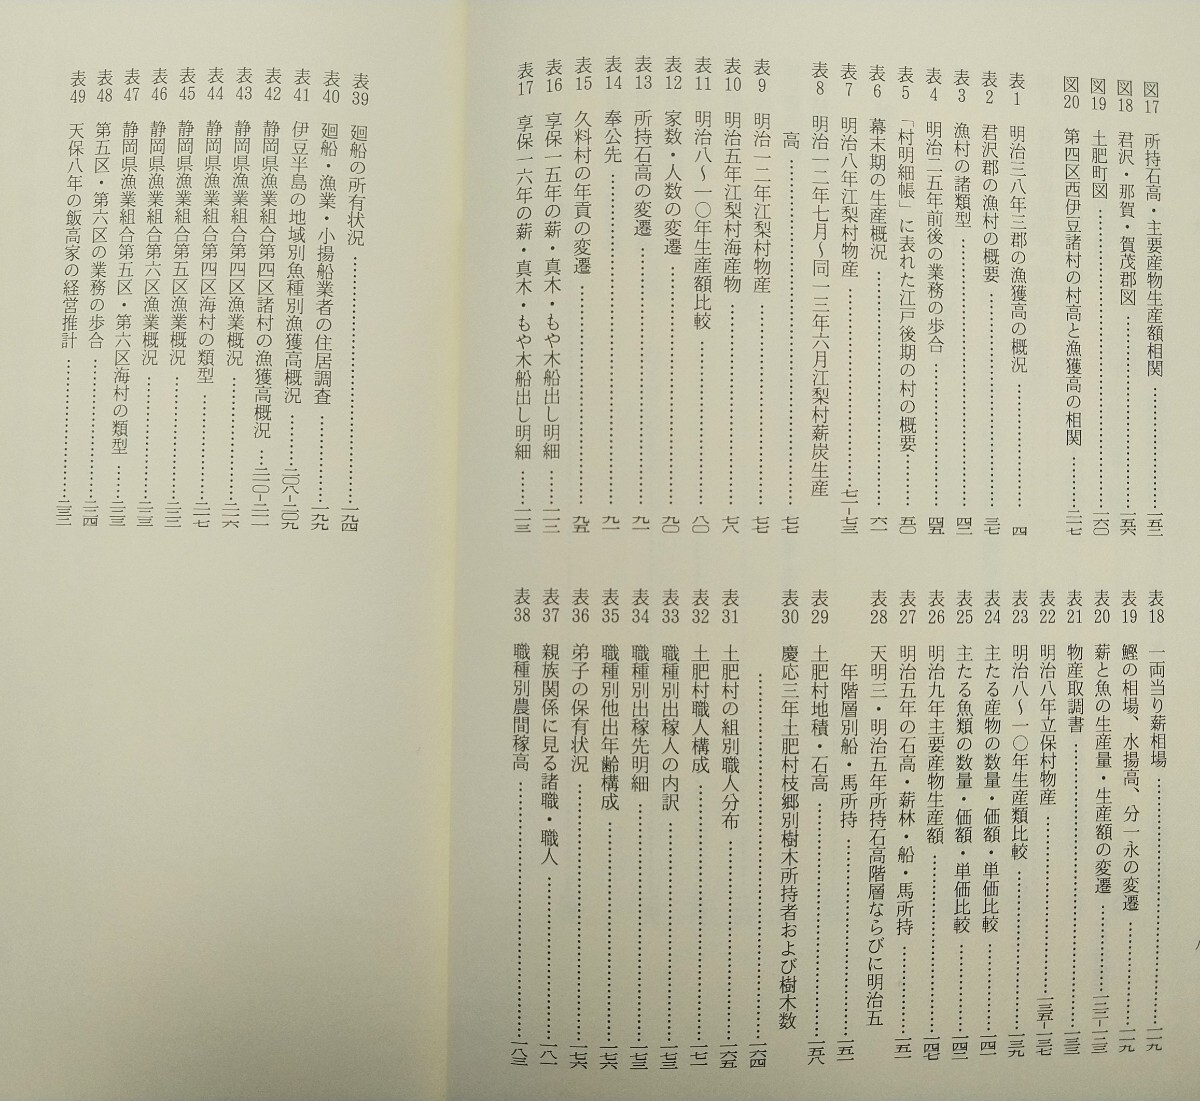 図17 所持石高・主要産物生産額相関……一五二
図18 君沢・那賀・賀茂郡図……一五六
図19 土肥町図……一六〇
図20 第四区西伊豆諸村の村高と漁獲高の相関……二一七
表1 明治三八年三郡の漁獲高の概況……四
表2 君沢郡の漁村の概要……三七
表3 漁村の諸類型……四二
表4 明治二五年前後の業務の歩合……四五
表5 「村明細帳」に表れた江戸後期の村の概要……五〇
表6 幕末期の生産概況……六一
表7 明治八年江梨村物産……七一-七三
表8 明治一二年七月～同一三年六月江梨村薪炭生産
高……七七
表9 明治一二年江梨村物産……七七
表10 明治五年江梨村海産物……七八
表11 明治八～一〇年生産額比較……八〇
表12 家数・人数の変遷……九〇
表13 所持石高の変遷……九一
表14 奉公先……九一
表15 久料村の年貢の変遷……九五
表16 享保一五年の薪・真木・もや木船出し明細……一一二
表17 享保一六年の薪・真木・もや木船出し明細……一一三
表18 一両当り薪相場……一一九
表19 鰹の相場、水揚高、分一永の変遷……一一九
表20 薪と魚の生産量・生産額の変遷……一二二-一二三
表21 物産取調書……一三三
表22 明治八年立保村物産……一三五-一三七
表23 明治八～一〇年生産類比較……一三九
表24 主たる産物の数量・価額・単価比較……一四一
表25 主たる魚類の数量・価額・単価比較……一四二
表26 明治九年主要産物生産額……一四七
表27 明治五年の石高・薪林・船・馬所持……一五一
表28 天明三・明治五年所持石高階層ならびに明治五
年階層別船・馬所持……一五一
表29 土肥村地積・石高……一五八
表30 慶応三年土肥村枝郷別樹木所持者および樹木数
……一六四
表31 土肥村の組別職人分布……一六五
表32 土肥村職人構成……一七一
表33 職種別出稼人の内訳……一七三
表34 職種別出稼先明細……一七三
表35 職種別他出年齢構成……一七六
表36 弟子の保有状況……一七六
表37 親族関係に見る諸職・職人……一八一
表38 職種別農間稼高……一八三
表39 廻船の所有状況……一九四
表40 廻船・漁業・小揚船業者の住居調査……一九九
表41 伊豆半島の地域別魚種別漁獲高概況……二〇八-二〇九
表42 静岡県漁業組合第四区諸村の漁獲高概況……二一〇-二一一
表43 静岡県漁業組合第四区漁業概況……二一六
表44 静岡県漁業組合第四区海村の類型……二一七
表45 静岡県漁業組合第五区漁業概況……二二二
表46 静岡県漁業組合第六区漁業概況……二二三
表47 静岡県漁業組合第五区・第六区海村の類型……二二三
表48 第五区・第六区の業務の歩合……二二四
表49 天保八年の飯高家の経営推計……二三二